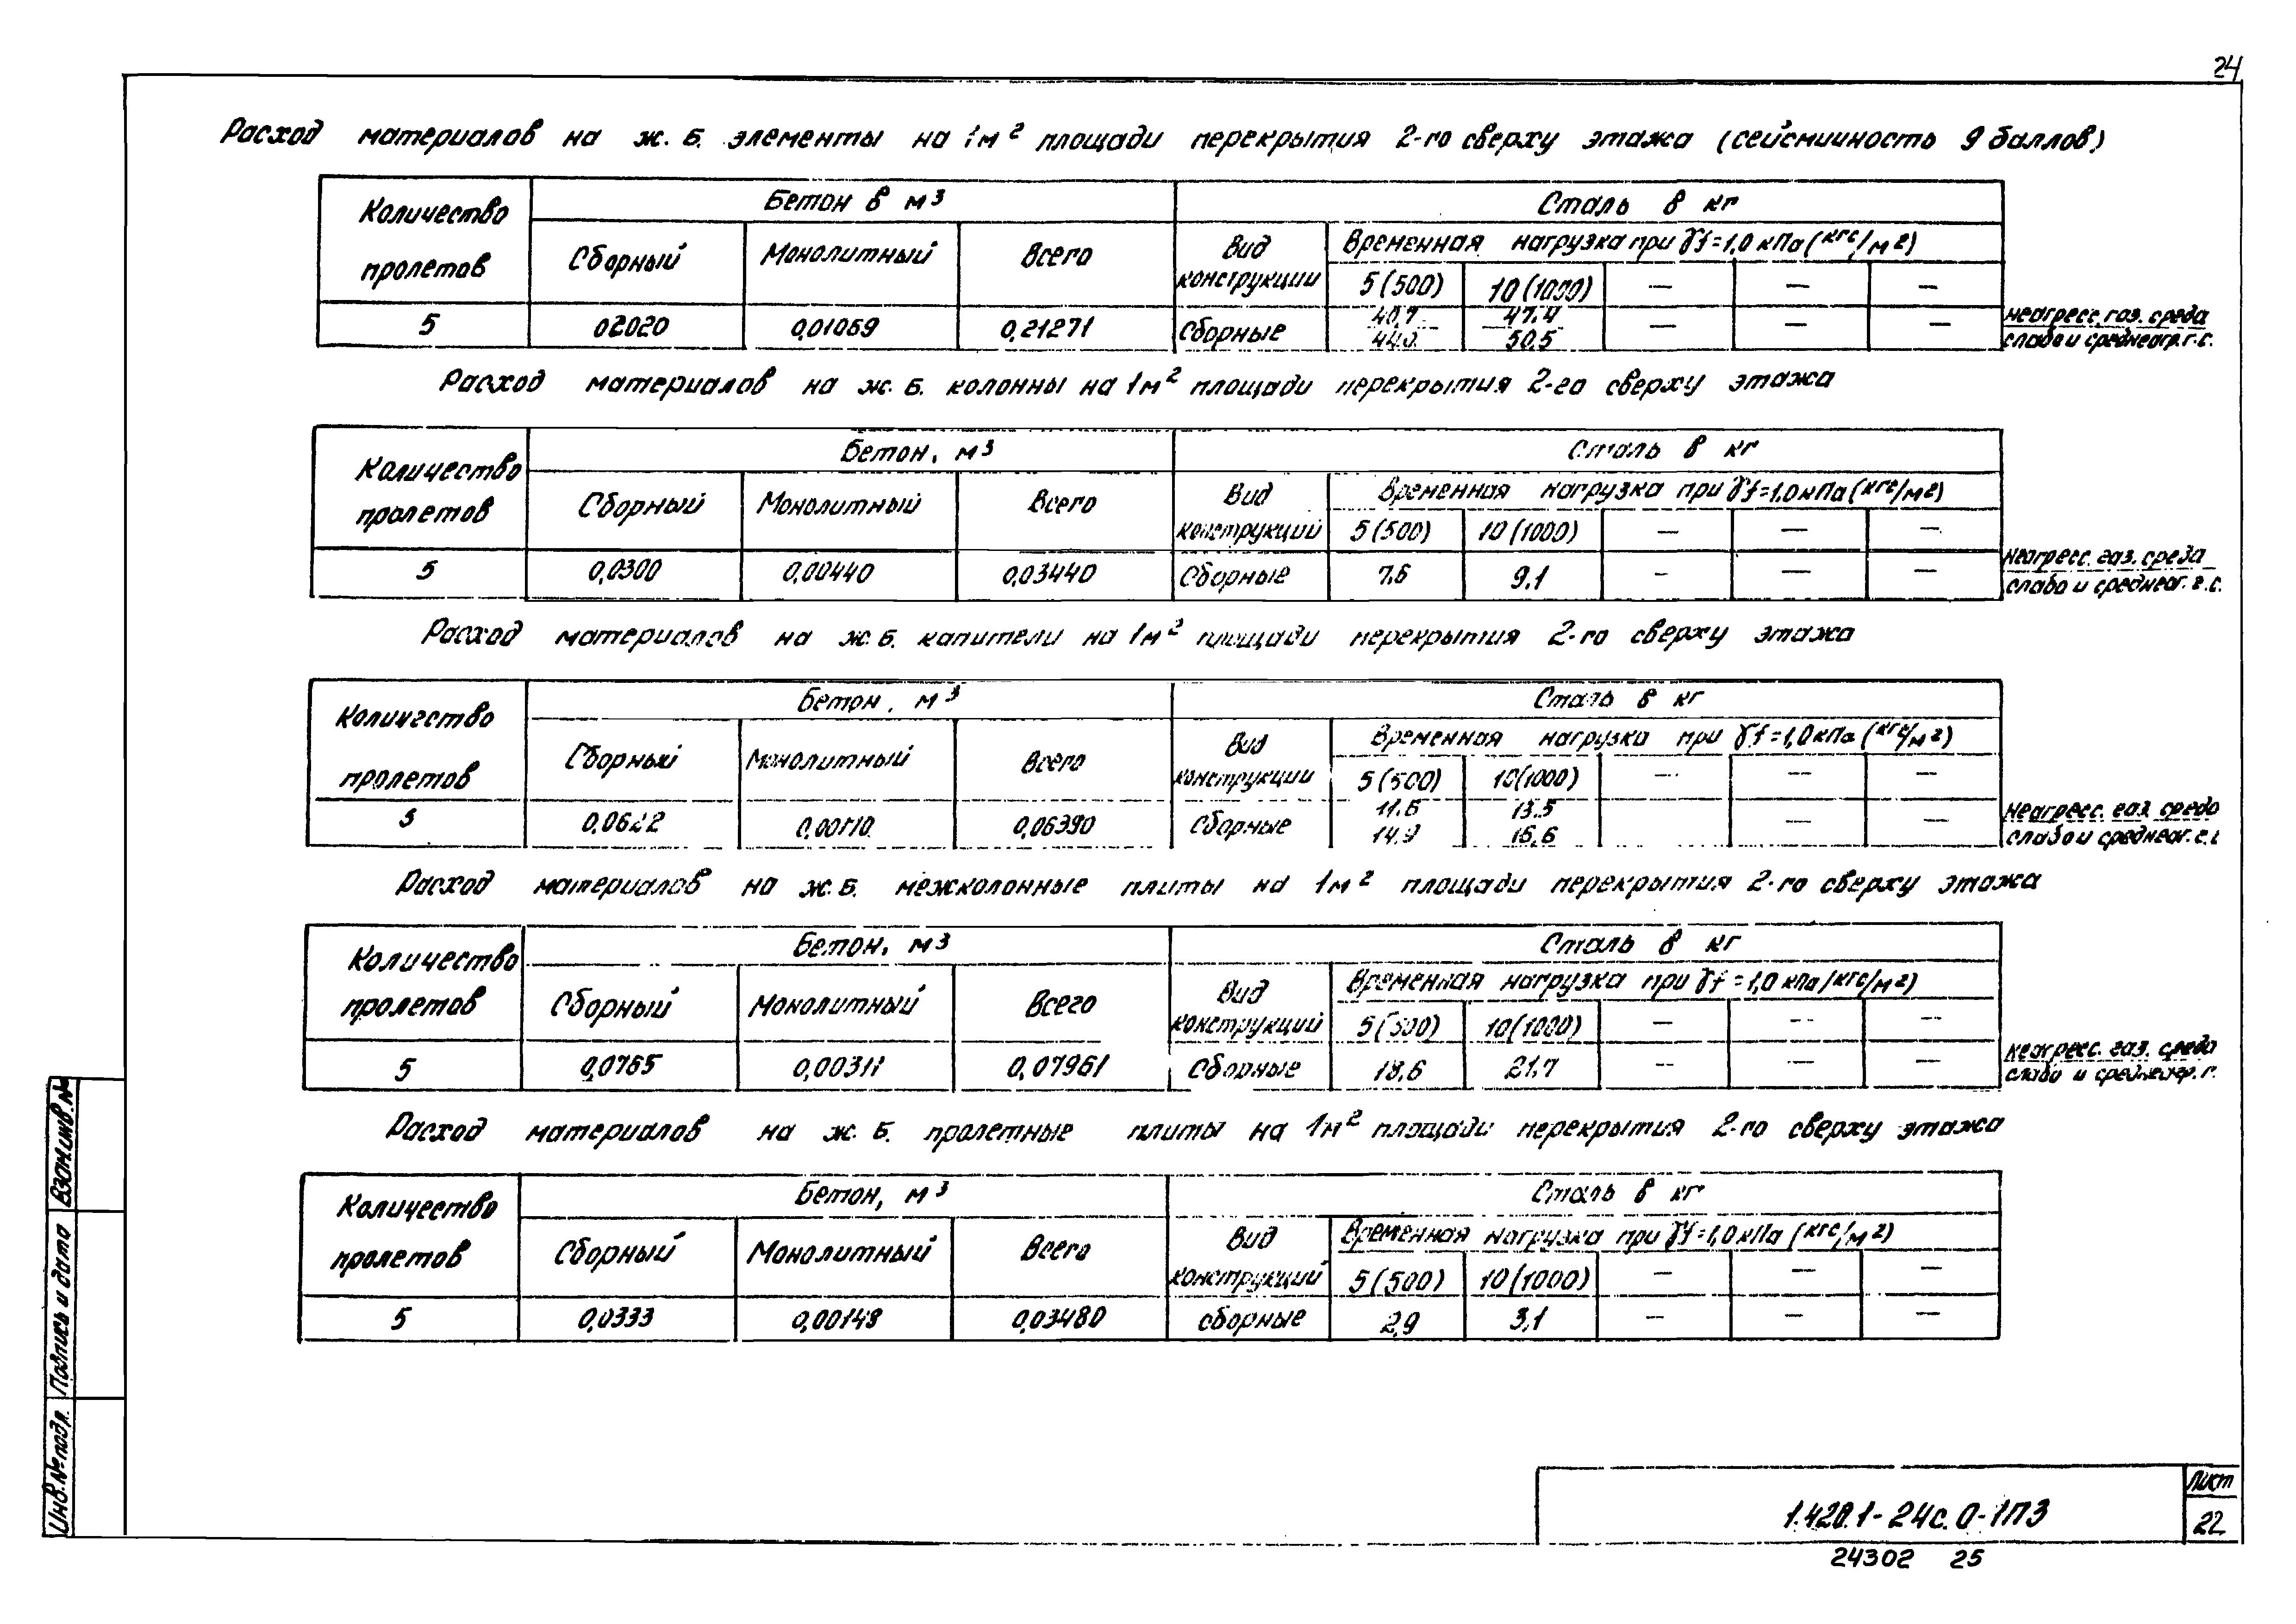 24
Расход материалов на ж.б. элементы на 1м² площади перекрытия 2-го сверху этажа (сейсмичность 9 баллов)
Количество пролетов | Бетон в м³ | Сталь в кг
Сборный | Монолитный | Всего | Вид конструкции | Временная нагрузка при γf=1,0 кПа (кгс/м²)
5(500) | 10(1000) | — | — | —
5 | 02020 | 0,01069 | 0,21271 | Сборные | 40,7 | 47.4 | — | — | — | неагресс. газ. среда
50,5 | слабо и среднеагр. г. с.
Расход материалов на ж.б. колонны на 1м² площади перекрытия 2-го сверху этажа
Количество пролетов | Бетон, м³ | Сталь в кг
Сборный | Монолитный | Всего | Вид конструкций | Временная нагрузка при γf=1,0 кПа (кгс/м²)
5(500) | 10(1000) | — | — | —
5 | 0,0300 | 0,00440 | 0,03440 | Сборные | 7,6 | 9,1 | — | — | — | неагресс. газ. среда
слабо и среднеаг. г. с.
Расход материалов на ж.б. капители на 1м² площади перекрытия 2-го сверху этажа
Количество пролетов | Бетон, м³ | Сталь в кг
Сборный | Монолитный | Всего | Вид конструкции | Временная нагрузка при γf=1,0 кПа (кгс/м²)
5(500) | 10(1000) | — | — | —
5 | 0,0622 | 0,00170 | 0,06390 | Сборные | 11.6 | 13.5 | — | — | неагресс. газ. среда
14.9 | 16,6 | слабо и среднеаг. г.с
Расход материалов на ж.б. межколонные плиты на 1м² площади перекрытия 2-го сверху этажа
Количество пролетов | Бетон, м³ | Сталь в кг
Сборный | Монолитный | Всего | Вид конструкций | Временная нагрузка при γf=1,0 кПа (кгс/м²)
5(500) | 10(1000) | — | — | —
5 | 0,0765 | 0,00311 | 0,07961 | Сборные | 18,6 | 21.7 | — | — | — | неагресс. газ. среда
слабо и среднеагр. г.
Расход материалов на ж.б. пролетные плиты на 1м² площади перекрытия 2-го сверху этажа
Количество пролетов | Бетон, м³ | Сталь в кг
Сборный | Монолитный | Всего | Вид конструкций | Временная нагрузка при γf=1,0 кПа (кгс/м²)
5(500) | 10(1000) | — | — | —
5 | 0,0333 | 0,00148 | 0,03480 | сборные | 2,9 | 3,1 | — | — | —
Взам.инв.№
Подпись и дата
Инв.№ подл.
1.420.1-24с.0-1ПЗ
Лист
22
24302 25